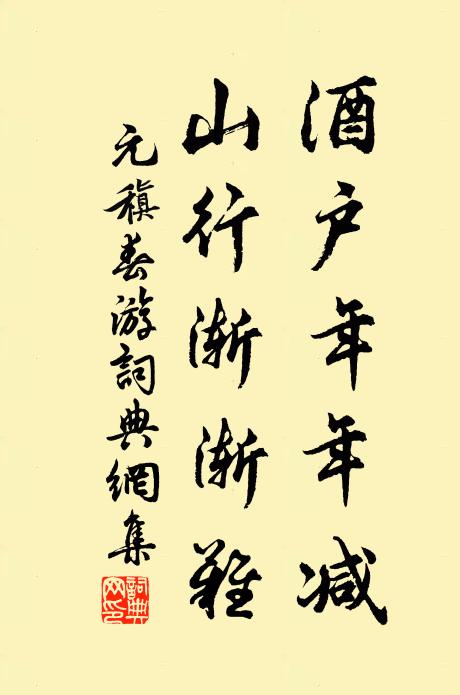 酒户年年减
山行渐渐難
元稹春游詞典網集
詞典网印